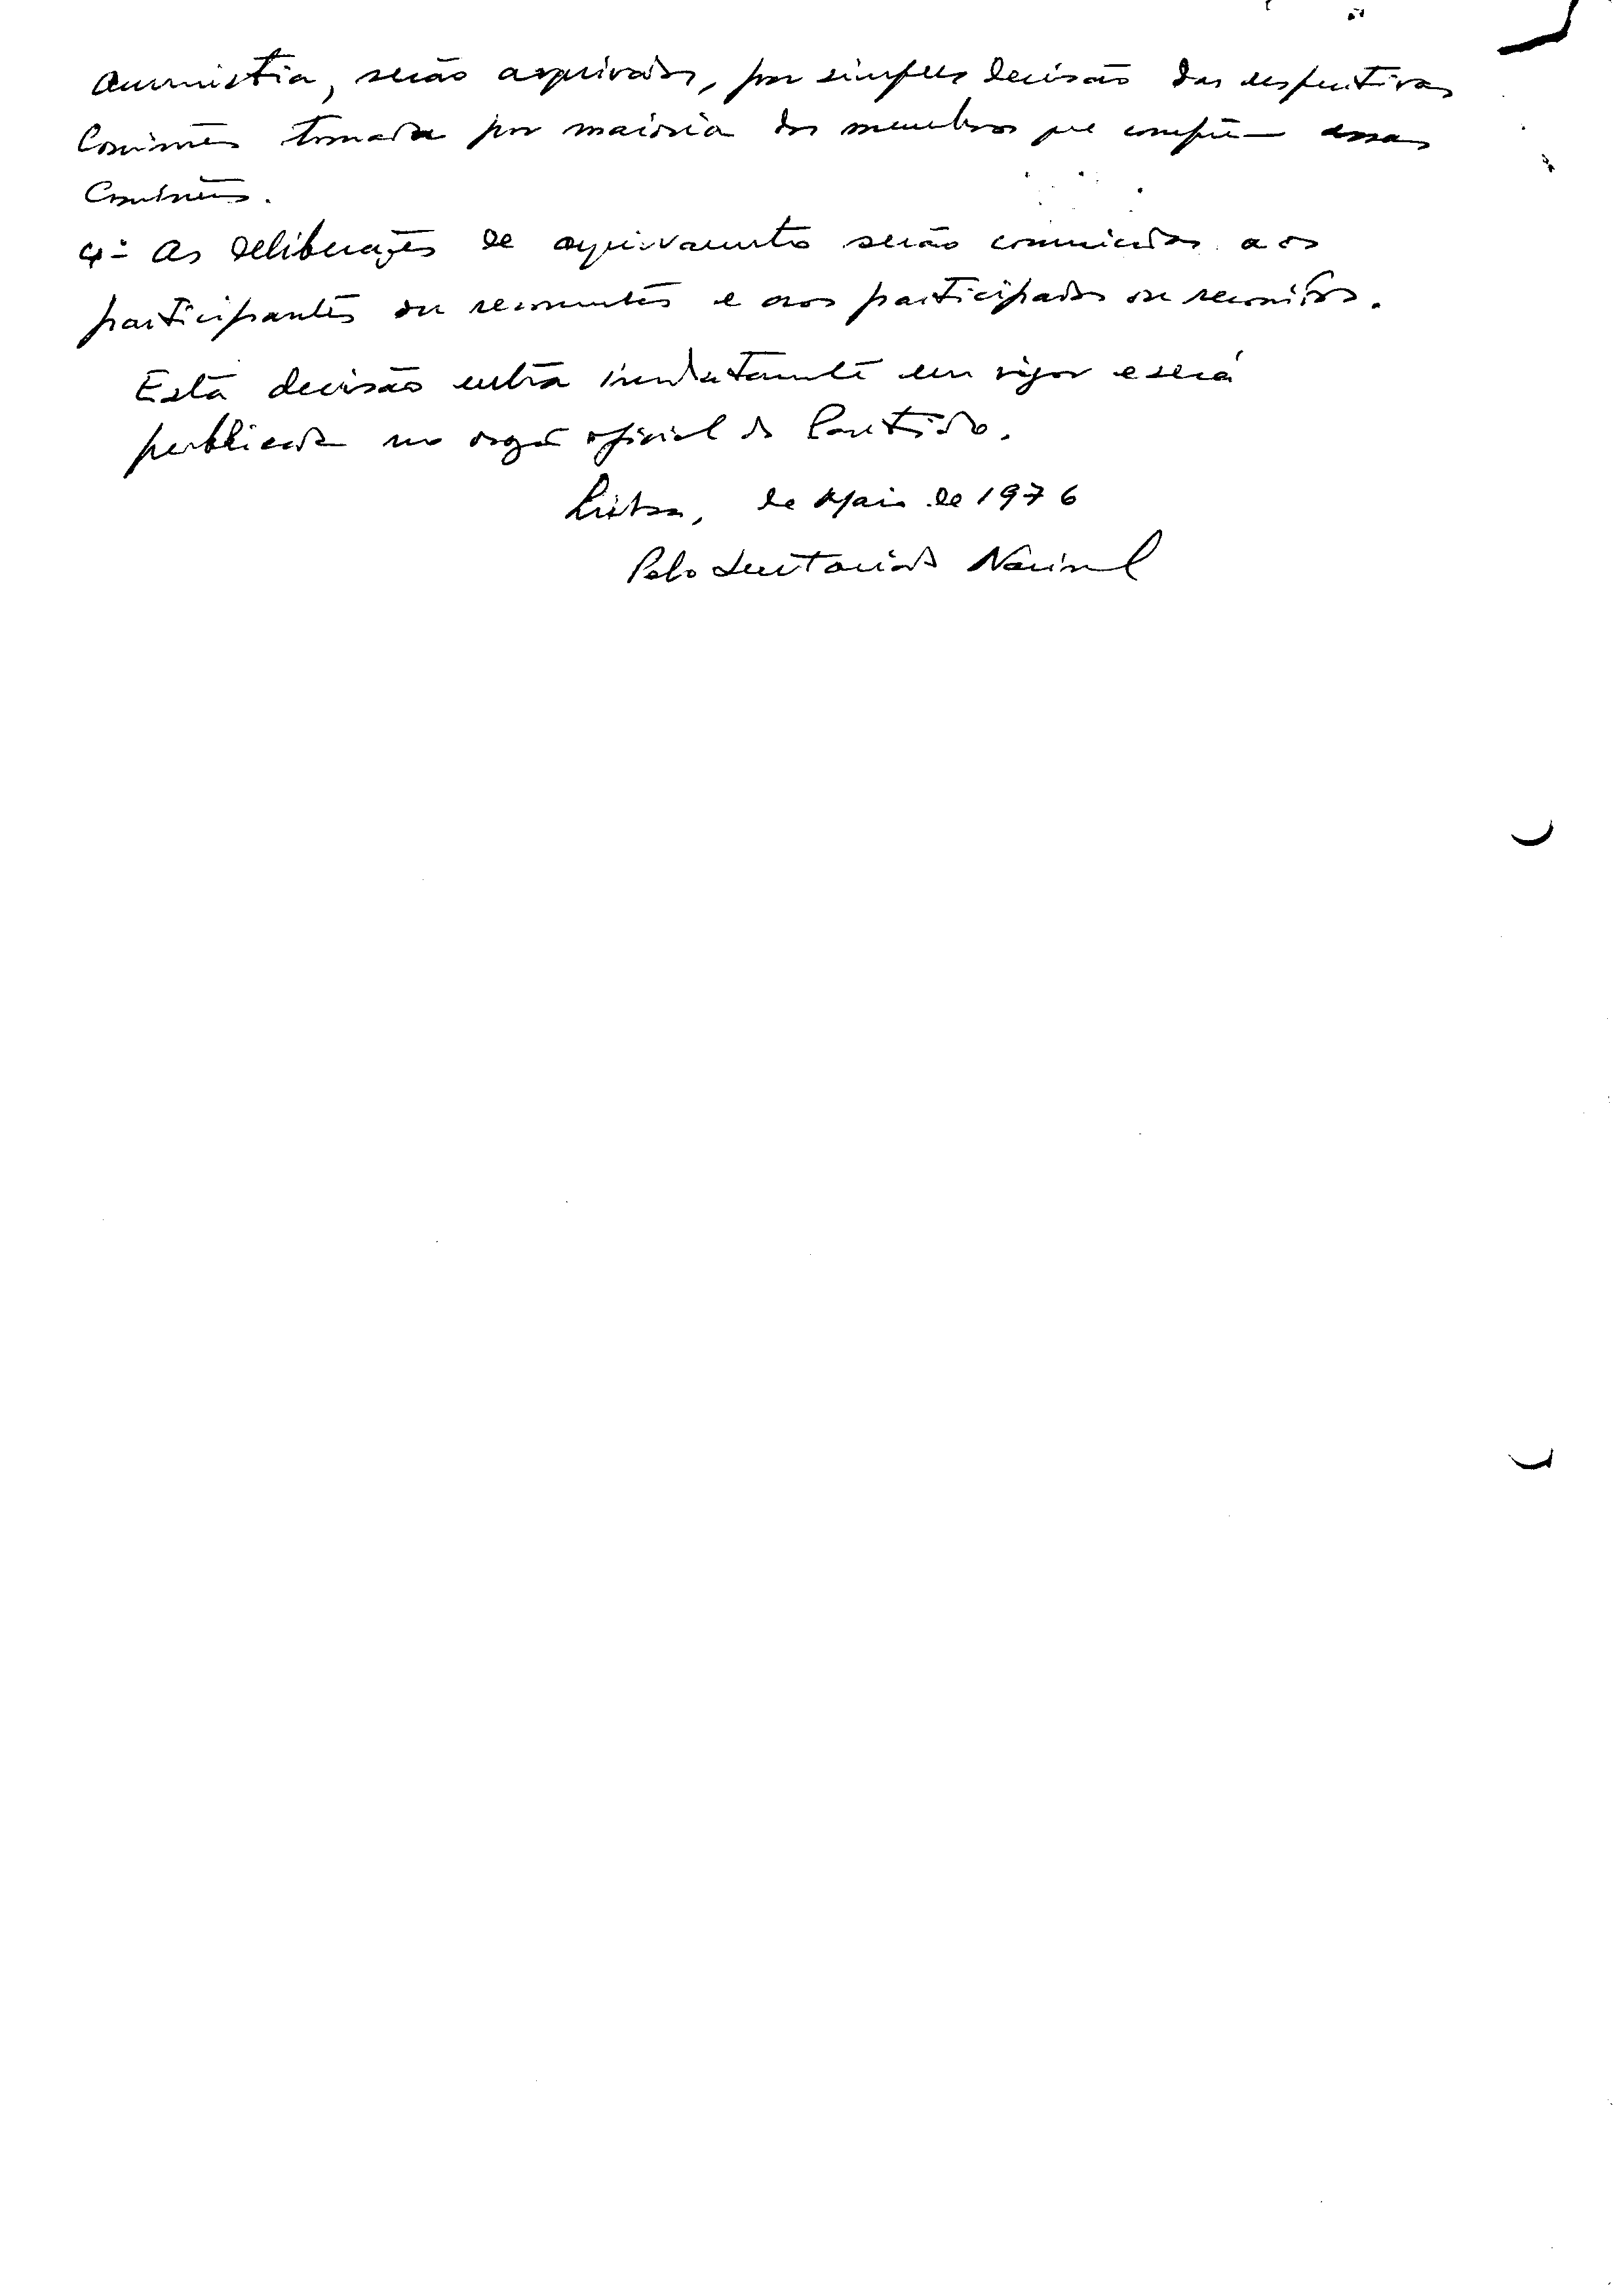 amnistia, serão arquivados, por simples decisão das respectivas
Comissões tomada por maioria dos membros que compõem essas
Comissões.
4º As deliberações de arquivamento serão comunicadas aos
participantes ou recorrentes e aos participados ou recorridos.
Esta decisão entra imediatamente em vigor e será
publicada no orgão oficial do Partido.
Lisboa, de Maio de 1976
Pelo Secretariado Nacional